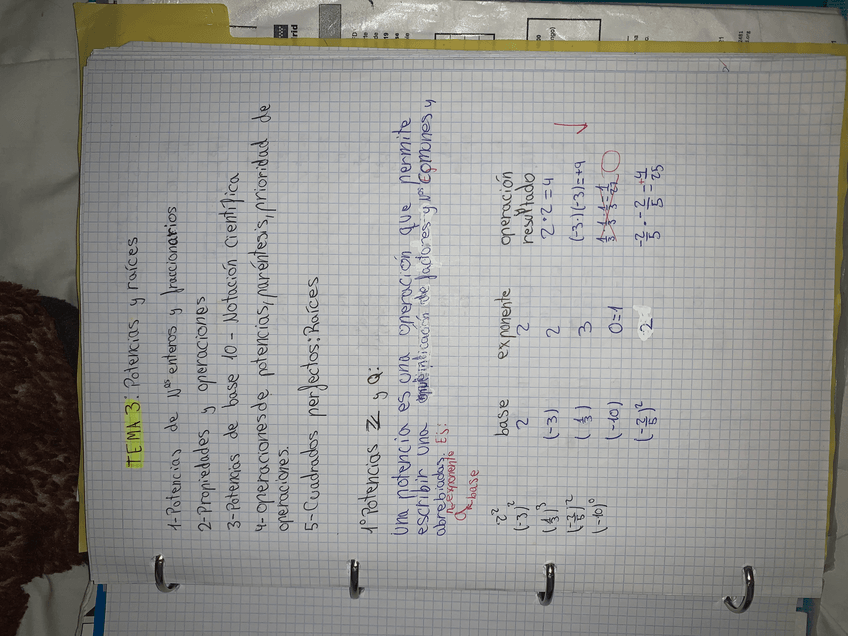 TEMA 3: Potencias y raíces
1-Potencias de Nos enteros y fraccionarios
2-Propiedades y operaciones
3-Potencias de base 10 - Notación científica
4-operaciones de potencias, paréntesis, prioridad de
operaciones.
5-Cuadrados perfectos: Raíces
1º Potencias Z y Q:
Una potencia es una operación que permite
escribir una multiplicación de factores y Nos comones y
abrebiadas. Ej:
exponente
a
base
base exponente operación
resultado
2² 2 2 2·2=4
(-3)² (-3) 2 (-3)·(-3)=+9
(1/3)³ (1/3) 3 1/3·1/3·1/3=1/27
(-2/5)² (-10) 0=1
(-10)⁰ (-2/5)² 2 -2/5·-2/5=+4/25